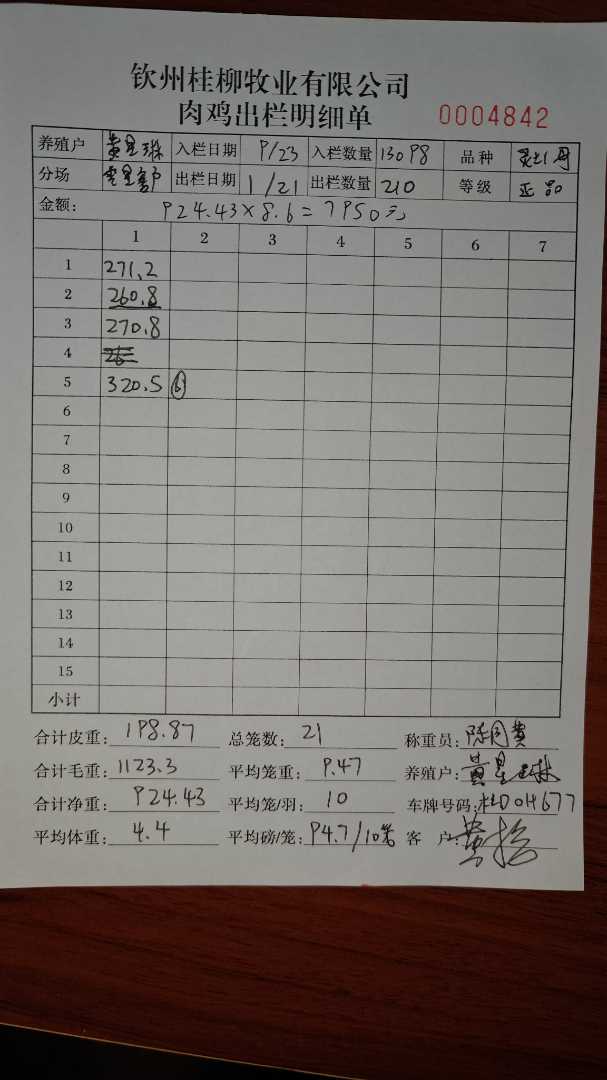 钦州桂柳牧业有限公司
肉鸡出栏明细单 0004842
养殖户 黄星琳 入栏日期 9/23 入栏数量 13098 品种
分场 出栏日期 1/21 出栏数量 210 等级 正品
金额: 924.43×8.6=7950元
1 2 3 4 5 6 7
1 271.2
2 260.8
3 270.8
4
5 320.5 ⑥
6
7
8
9
10
11
12
13
14
15
小计
合计皮重: 198.87 总笼数: 21 称重员:
合计毛重: 1123.3 平均笼重: 9.47 养殖户: 黄星琳
合计净重: 924.43 平均笼/羽: 10 车牌号码: 桂D04677
平均体重: 4.4 平均磅/笼: 94.7/10笼 客户: